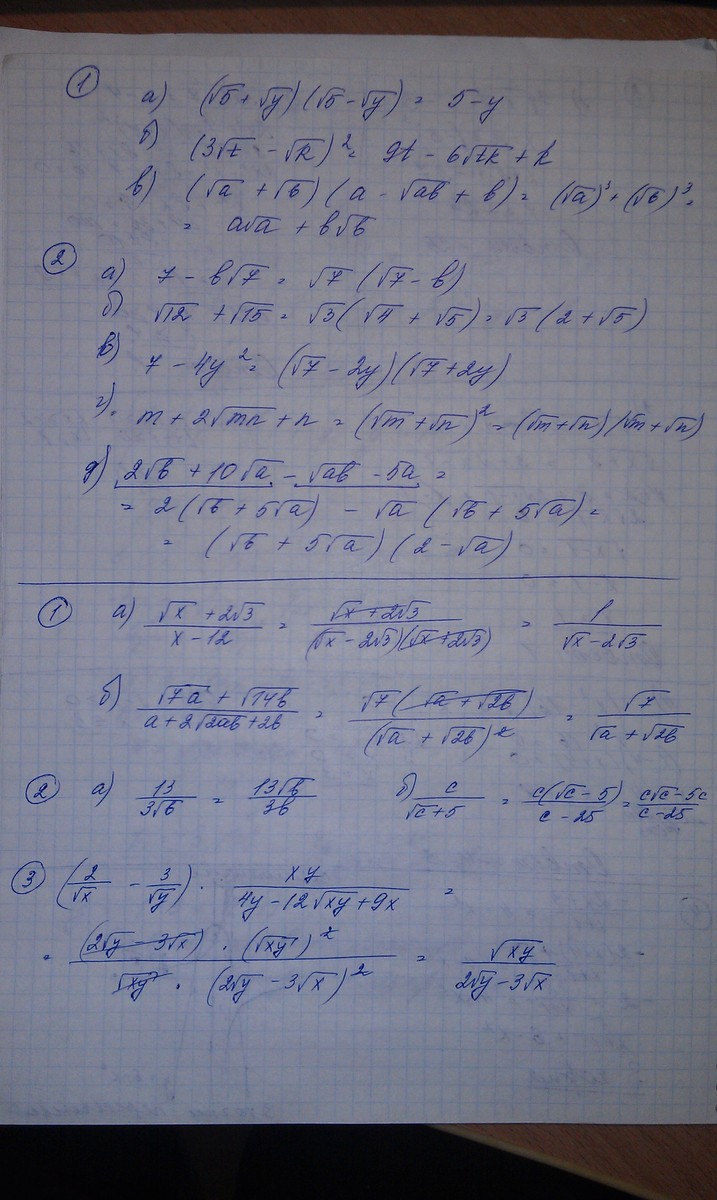 ① а) (√5 + √y)(√5 − √y) = 5 − y
б) (3√t − √k)² = 9t − 6√tk + k
в) (√a + √b)(a − √ab + b) = (√a)³ + (√b)³ =
= a√a + b√b
② а) 7 − b√7 = √7(√7 − b)
б) √12 + √15 = √3(√4 + √5) = √3(2 + √5)
в) 7 − 4y² = (√7 − 2y)(√7 + 2y)
г) m + 2√mn + n = (√m + √n)² = (√m + √n)(√m + √n)
д) 2√b + 10√a − √ab − 5a =
= 2(√b + 5√a) − √a(√b + 5√a) =
= (√b + 5√a)(2 − √a)
① а) (√x + 2√3)/(x − 12) = (√x + 2√3)/((√x − 2√3)(√x + 2√3)) = 1/(√x − 2√3)
б) (√7a + √14b)/(a + 2√2ab + 2b) = √7(√a + √2b)/(√a + √2b)² = √7/(√a + √2b)
② а) 13/(3√b) = 13√b/3b б) c/(√c + 5) = c(√c − 5)/(c − 25) = (c√c − 5c)/(c − 25)
③ (2/√x − 3/√y) · xy/(4y − 12√xy + 9x) =
= (2√y − 3√x) · (√xy)²/(√xy · (2√y − 3√x)²) = √xy/(2√y − 3√x)